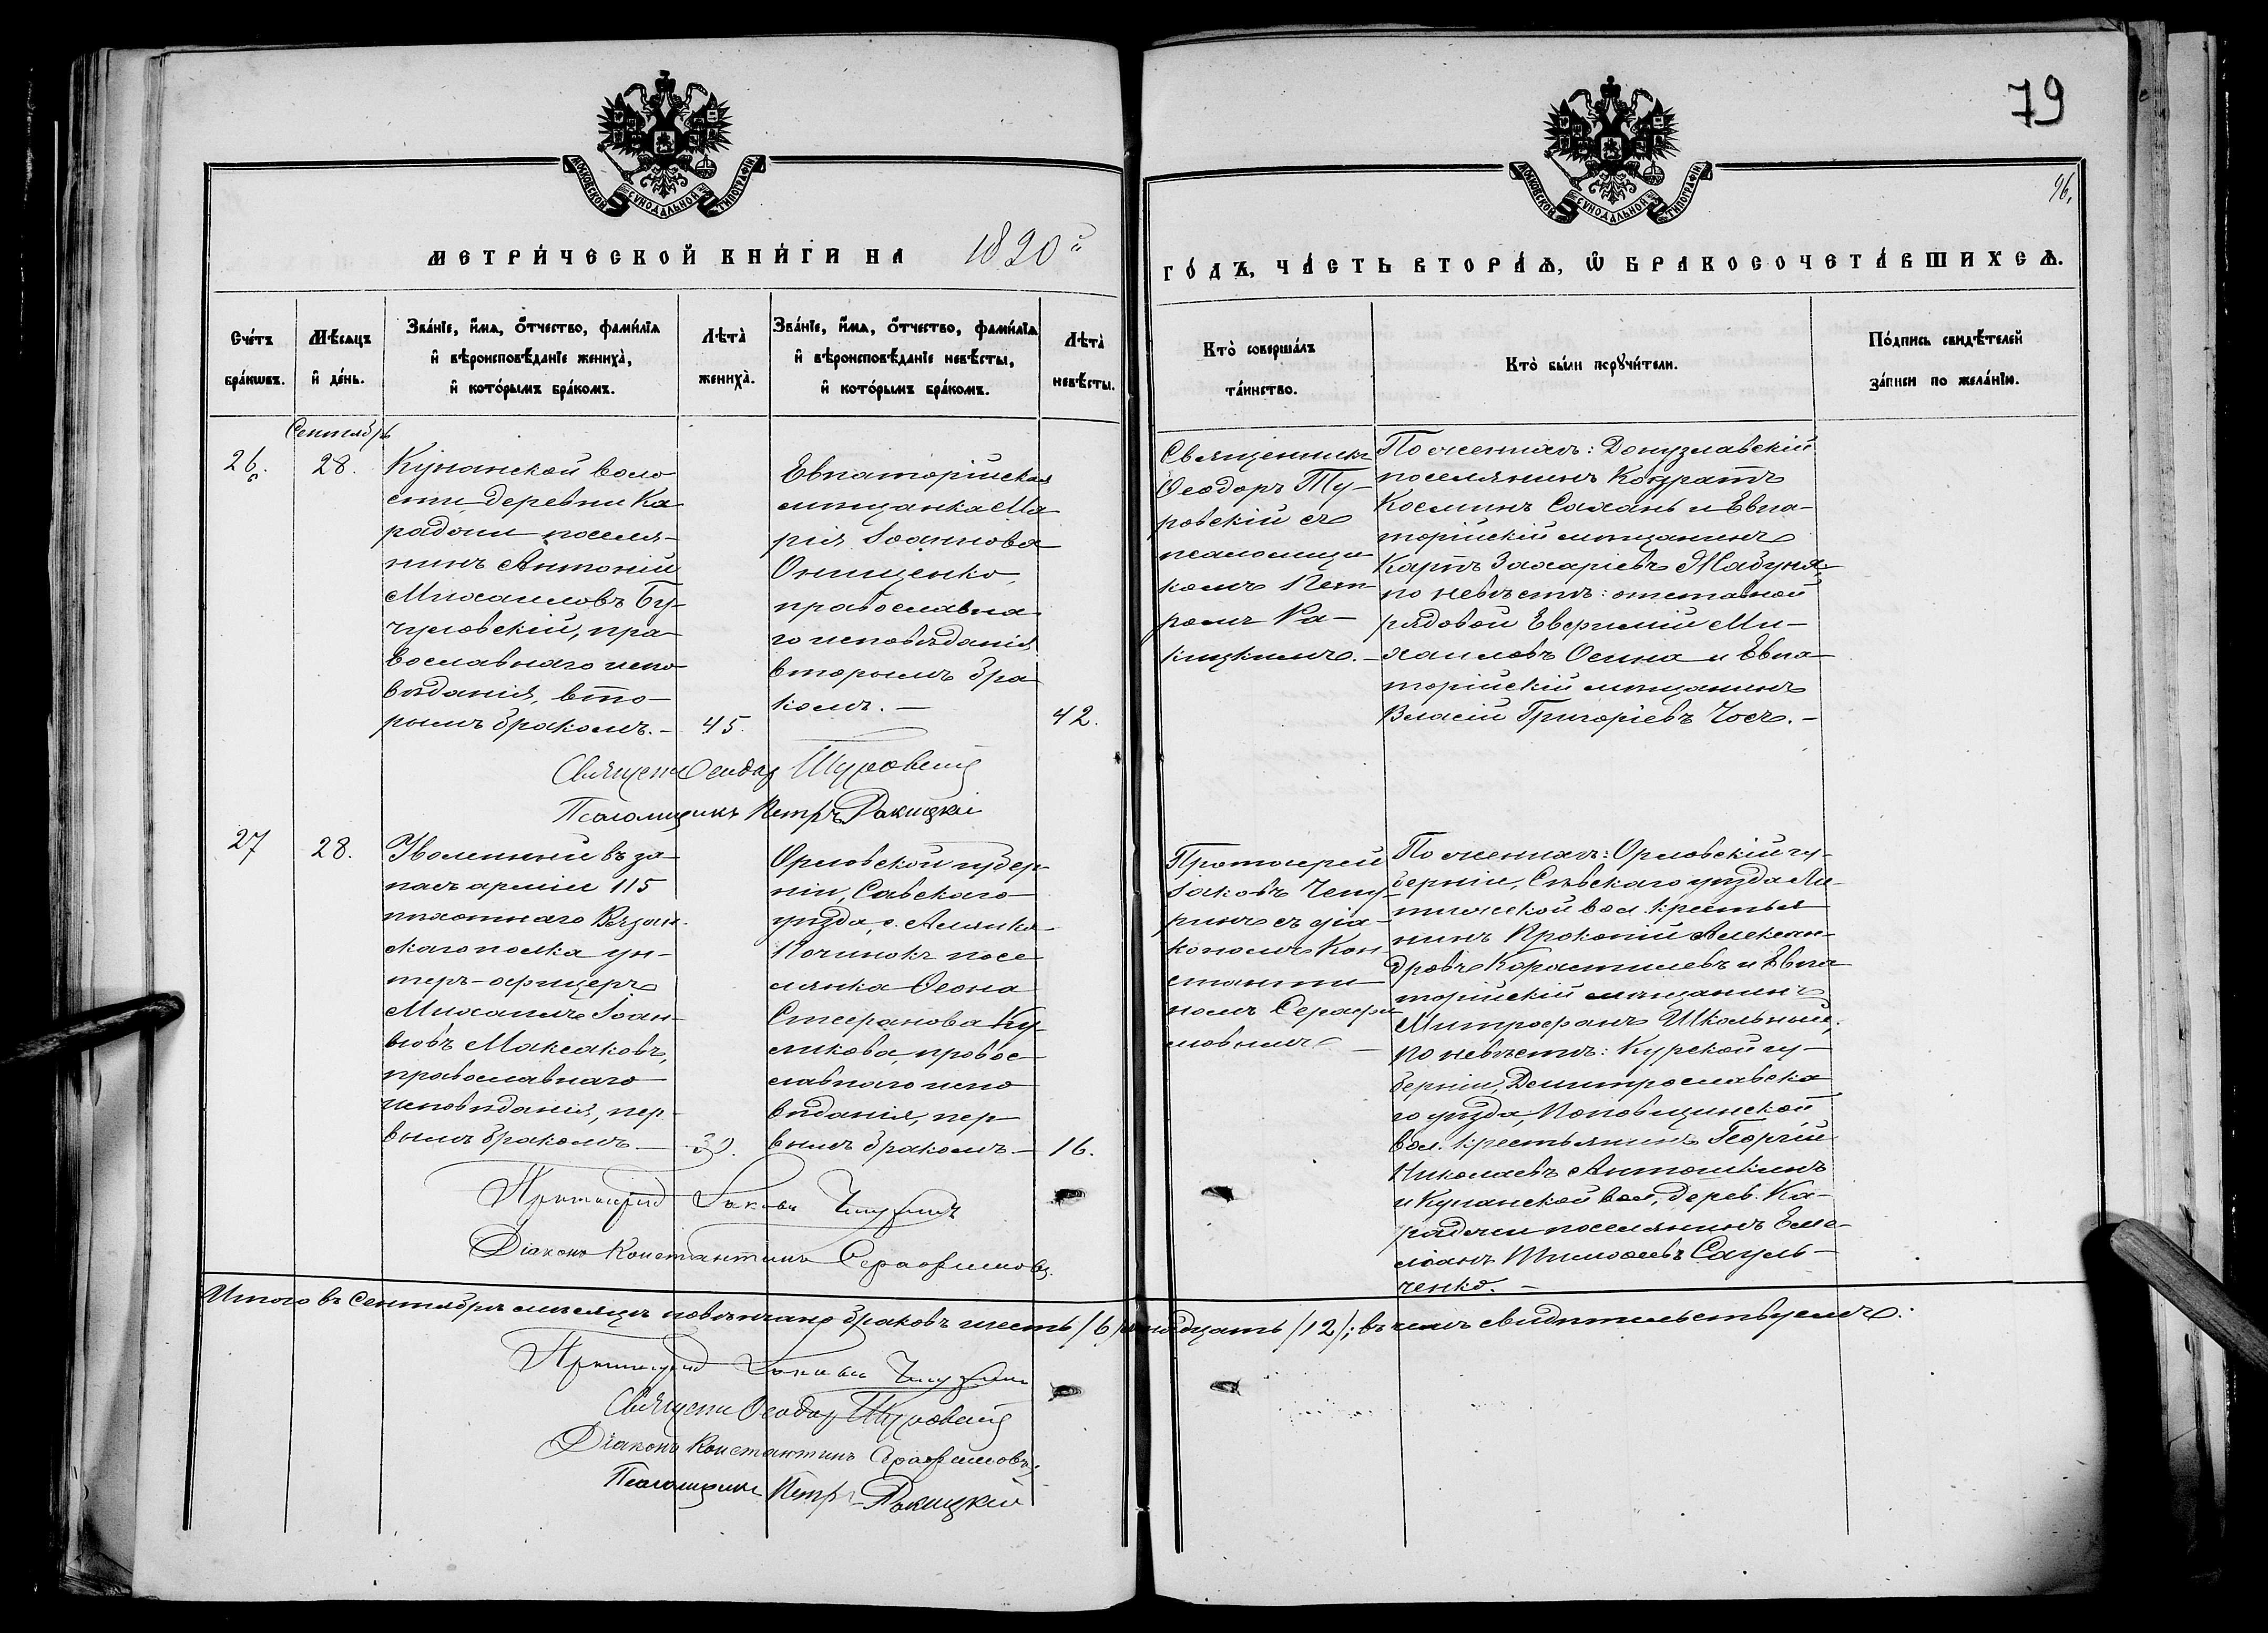 79
96.
МОСКОВСКОЙ СУНОДАЛЬНОЙ ТИПОГРАФІИ
МОСКОВСКОЙ СУНОДАЛЬНОЙ ТИПОГРАФІИ
МЕТРИ́ЧЕСКОЙ КНИ́ГИ НА 1890й
ГО́ДЪ, ЧА́СТЬ ВТОРА́Ѧ, Ѡ БРАКОСОЧЕТА́ВШИХСѦ.
Сче́тъ бра́кѡвъ.
Мѣ́сяцъ и҆ де́нь.
Зва́нїе, и҆́мѧ, о҆́тчество, фами́лїѧ
и҆ вѣроисповѣ́данїе жениха̀,
и҆ кото́рымъ бра́комъ.
Лѣта̀ жениха̀.
Зва́нїе, и҆́мѧ, о҆́тчество, фами́лїѧ
и҆ вѣроисповѣ́данїе невѣ́сты,
и҆ кото́рымъ бра́комъ.
Лѣта̀ невѣ́сты.
Кто̀ соверша́лъ
та́инство.
Кто̀ бы́ли порꙋчи́тели.
По́дпись свидѣ́телей
за́писи по жела́нїю.
Сентябрь
26.
28.
Кунанской воло-
сти, деревни Ка-
радони поселя-
нинъ Антоній
Михаиловъ Бу-
чуловскій, пра-
вославнаго испо-
вѣданія, вто-
рымъ бракомъ.
45.
Евпаторійская
мѣщанка Ма-
рія Іоаннова
Онищенко,
православна-
го исповѣданія
вторымъ бра-
комъ.
42.
Священникъ
Ѳеодоръ Ту-
ровскій съ
псаломщи-
комъ Пет-
ромъ Ра-
кицкимъ.
По женихѣ: Донузлавскій
поселянинъ Кондратъ
Косминъ Сахань и Евпа-
торійскій мѣщанинъ
Карпъ Захаріевъ Мабуня;
по невѣстѣ: отставной
рядовой Евфимій Ми-
хаиловъ Осина и Евпа-
торійскій мѣщанинъ
Власій Григоріевъ Чосъ.
Священ Ѳеодор Туровский
Псаломщикъ Петръ Ракицкій
27
28.
Уволенный въ за-
пасъ арміи 115
пѣхотнаго Вязем-
скаго полка ун-
теръ-офицеръ
Михаилъ Іоан-
новъ Максаковъ,
православнаго
исповѣданія, пер-
вымъ бракомъ
30.
Орловской губер-
ніи, Сѣвскаго
уѣзда, с.
Починокъ посе-
лянка Ѳеона
Стефанова Ку-
ликова, правос-
лавнаго испо-
вѣданія, пер-
вымъ бракомъ
16.
Протоіерей
Іаковъ Чепу-
ринъ съ діа-
кономъ Кон-
станти-
номъ Серафи-
мовымъ
По женихѣ: Орловскій гу-
берніи, Сѣвскаго уѣзда
вол. крестья-
нинъ Прокопій Алексан-
дровъ Коростилевъ и Евпа-
торійскій мѣщанинъ
Митрофанъ Школьный;
по невѣстѣ: Курской гу-
берніи, Дмитрославска-
го уѣзда, Поповщинской
вол. крестьянинъ Георгій
Николаевъ Антошкинъ
и Кунанской вол., дерев. Ка-
поселянинъ Еме-
ліанъ Тимоѳеевъ Сауль-
ченко.
Протоіерей Іаковъ Чепуринъ
Діаконъ Константинъ Серафимовъ.
Итого въ Сентябрѣ мѣсяцѣ повѣнчано браковъ шесть /6/ двѣнадцать /12/; въ чемъ свидѣтельствуемъ:
Протоіерей Іаковъ Чепуринъ
Священ Ѳеодор Туровский
Діаконъ Константинъ Серафимовъ
Псаломщикъ Петръ Ракицкій